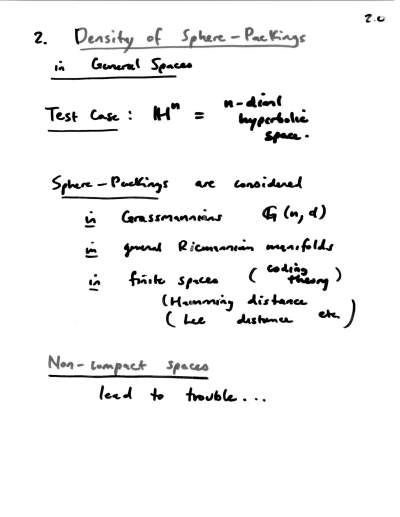 2.0
2. Density of Sphere-Packings
in General Spaces
Test Case: ℍⁿ = n-diml
hyperbolic
space.
Sphere-Packings are considered
in Grassmannians G(n,d)
in general Riemannian manifolds
in finite spaces (coding theory)
(Hamming distance
(Lee distance etc)
Non-compact spaces
lead to trouble...